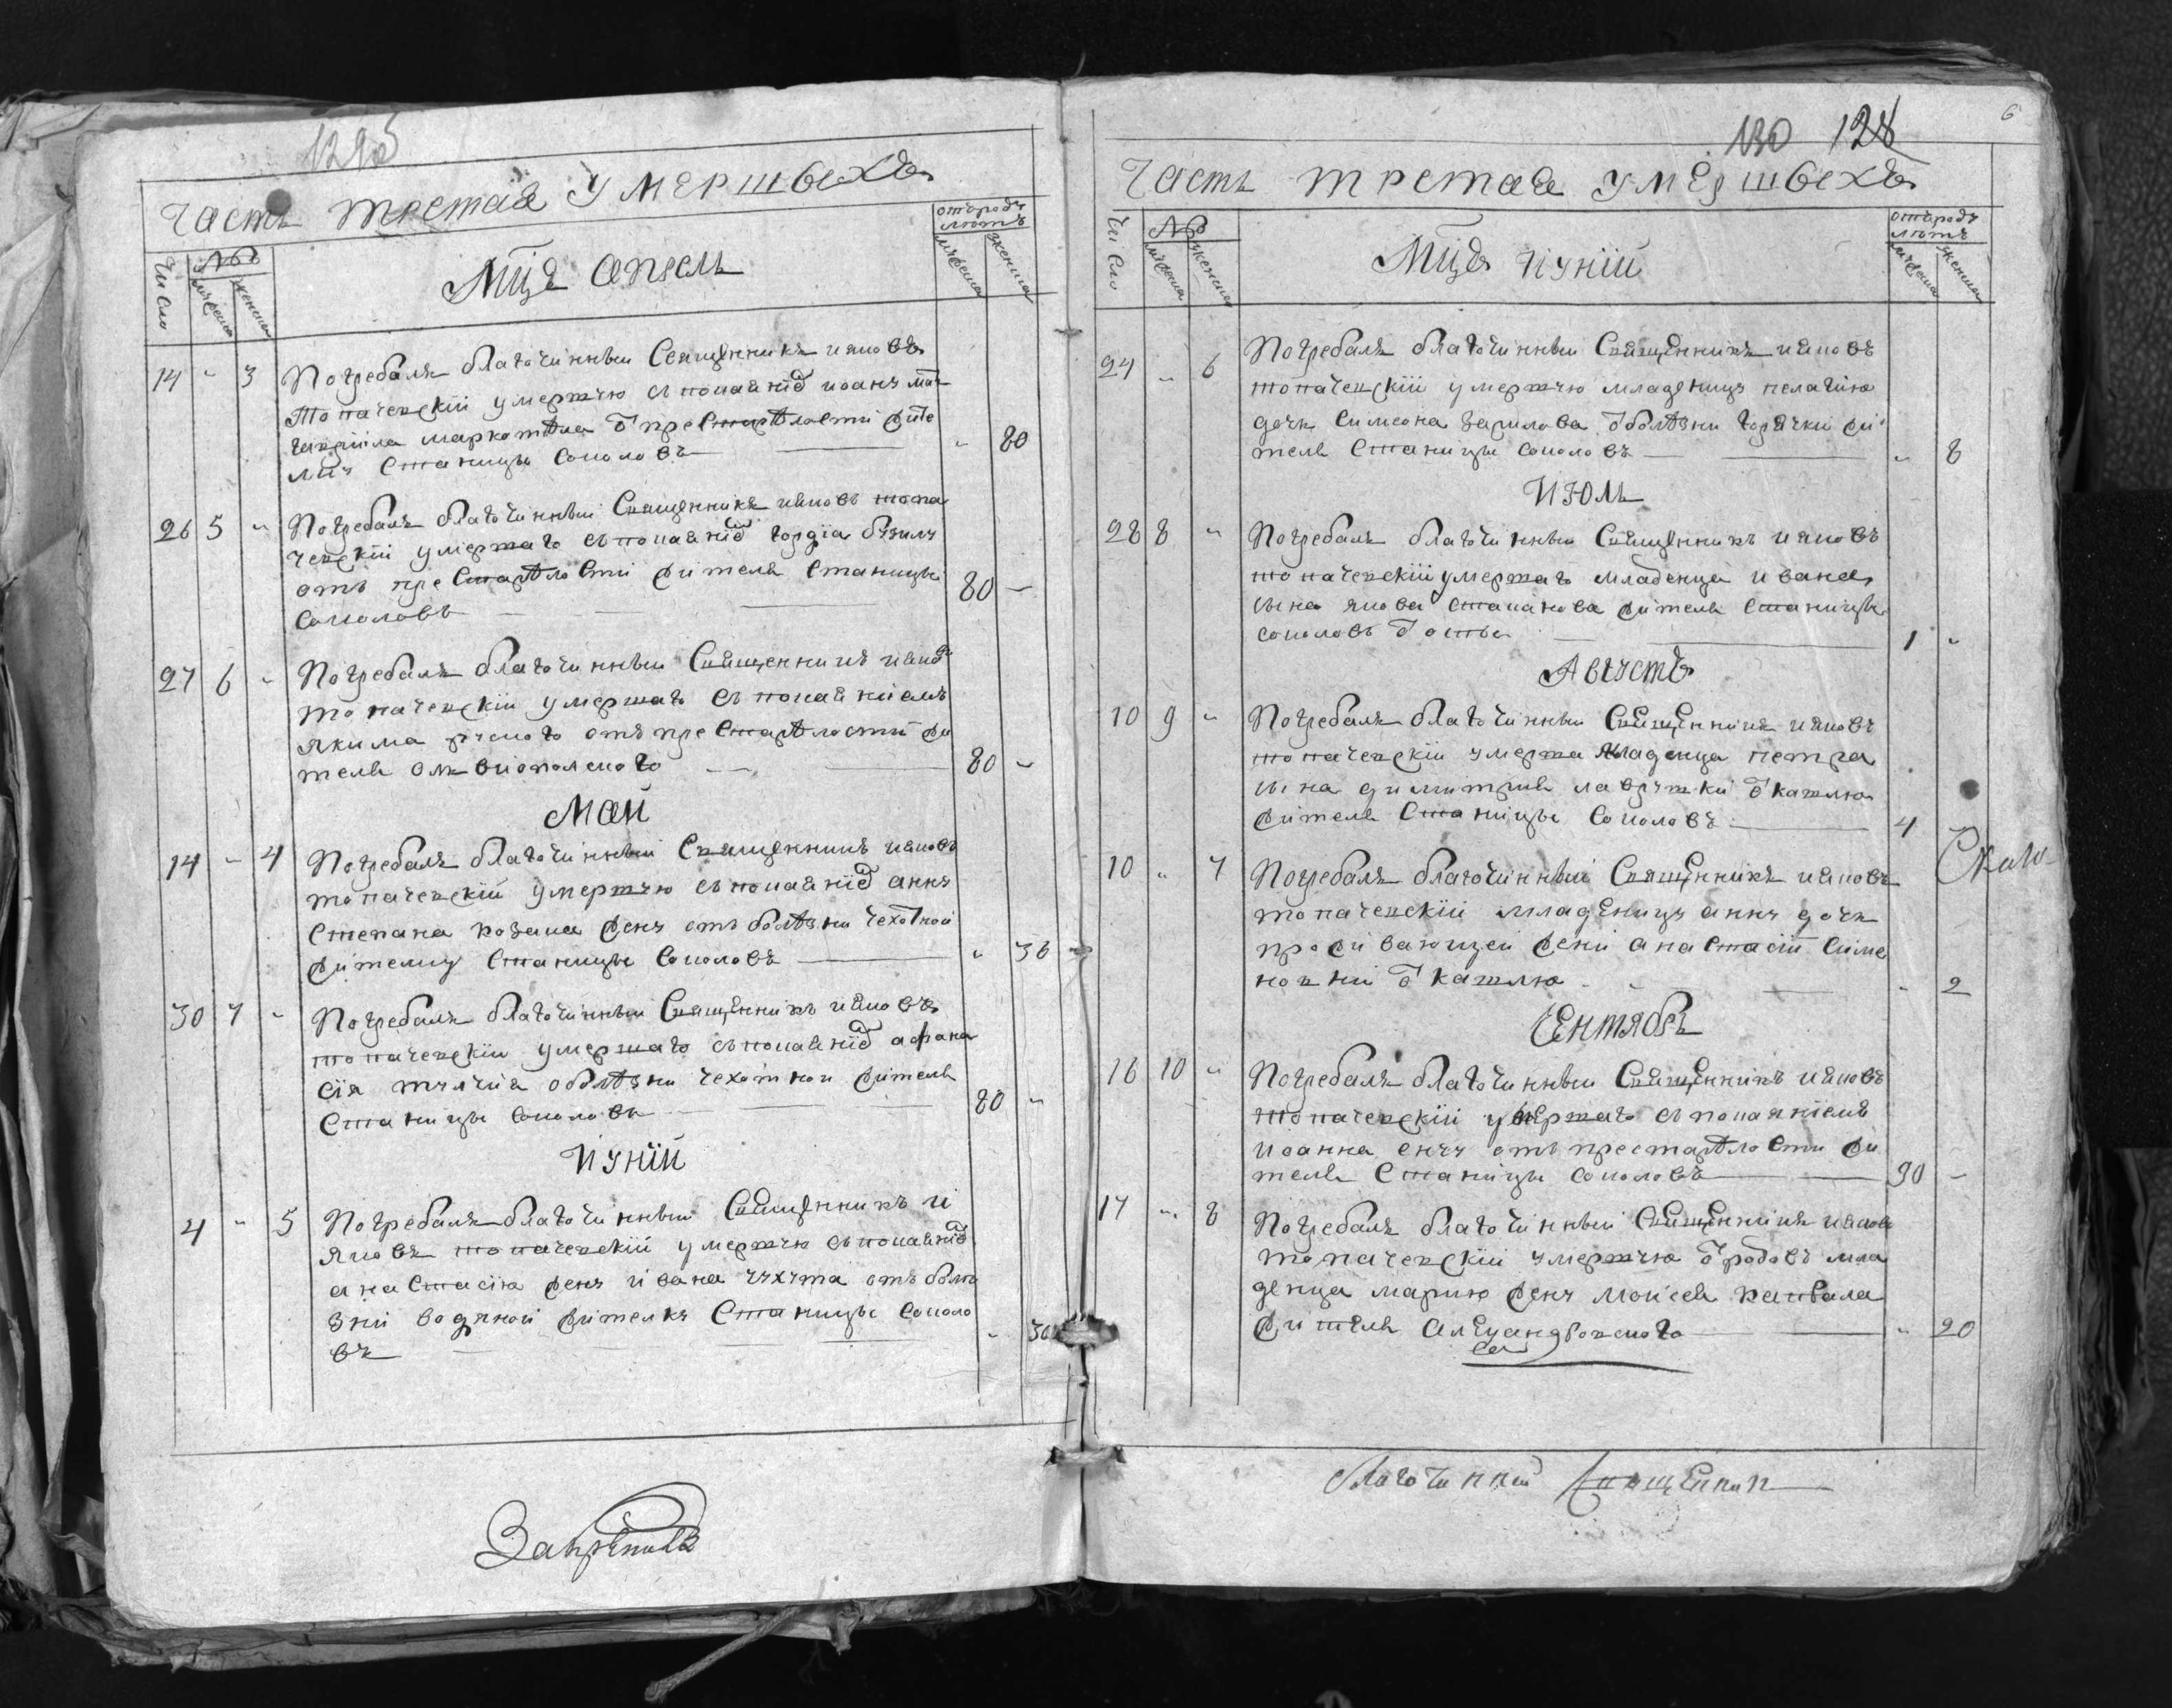 Часть третая умершыхъ
Число
№
мужеска
женска
Мцъ Априль
отъ родъ
лѣтъ
мужеска
женска
14 " 3
Погребалъ благочинный Священникъ иаковъ
топачевскій умершую съ покаянїе иоану мат
гавриіла маркотѣла ѿ престарѣлости жите
лку станицы соколовъ " 80
26 5 "
Погребалъ благочинный Священникъ иаковъ топа
чевскій умершаго съ покаянїе гордїа
отъ престарѣлости жителя станицы
соколовъ 80 —
27 6 "
Погребалъ благочинный Священникъ иаковъ
топачевскій умершаго съ покаяніемъ
якима отъ престарѣлости жи
теля ольвиопольского 80 "
Май
14 " 4
Погребалъ благочинный Священникъ иаковъ
топачевскій умершую съ покаянїе анну
степана козака жену отъ болѣзни чехотной
жителку станицы соколовъ " 36
30 7 "
Погребалъ благочинный Священникъ иаковъ
топачевскій умершаго съ покаянїе афана
сїя ѿ болѣзни чехотной жителя
станицы соколовъ 80 "
Иуній
4 " 5
Погребалъ благочинный Священникъ и
яковъ топачевскій умершую съ покаянїе
анастасїю жену ивана отъ болѣ
зни водяной жителку станицы соколо
въ " 30
130 128
6
Часть третая умершыхъ
Число
№
мужеска
женска
Мцъ иуній
отъ родъ
лѣтъ
мужеска
женска
24 " 6
Погребалъ благочинный Священникъ иаковъ
топачевскій умершую младеницу пелагїю
дочь симеона гаврилова ѿ болѣзни горячки жи
теля станицы соколовъ " 8
Июль
28 8 "
Погребалъ благочинный Священникъ иаковъ
топачевскій умершаго младенца ивана
сына якова стаканова жителя станицы
соколовъ ѿ оспы 1 "
Августъ
10 9 "
Погребалъ благочинный Священникъ иаковъ
топачевскій умерша младенца петра
сына димитрія лаврушки ѿ кашлю
жителя станицы соколовъ 4
10 " 7
Погребалъ благочинный Священникъ иаковъ
топачевскій младеницу анну дочь
проживающей жени анастасїи симе
новни ѿ кашлю " 2
Сентябрь
16 10 "
Погребалъ благочинный Священникъ иаковъ
топачевскій умершаго съ покаянїемъ
иоанна отъ престарѣлости жи
теля станицы соколовъ 90 —
17 " 8
Погребалъ благочинный Священникъ иаковъ
топачевскій умершую ѿ родовъ мла
денца марию жену моисея
жителя александровского " 20
благочинный Священник